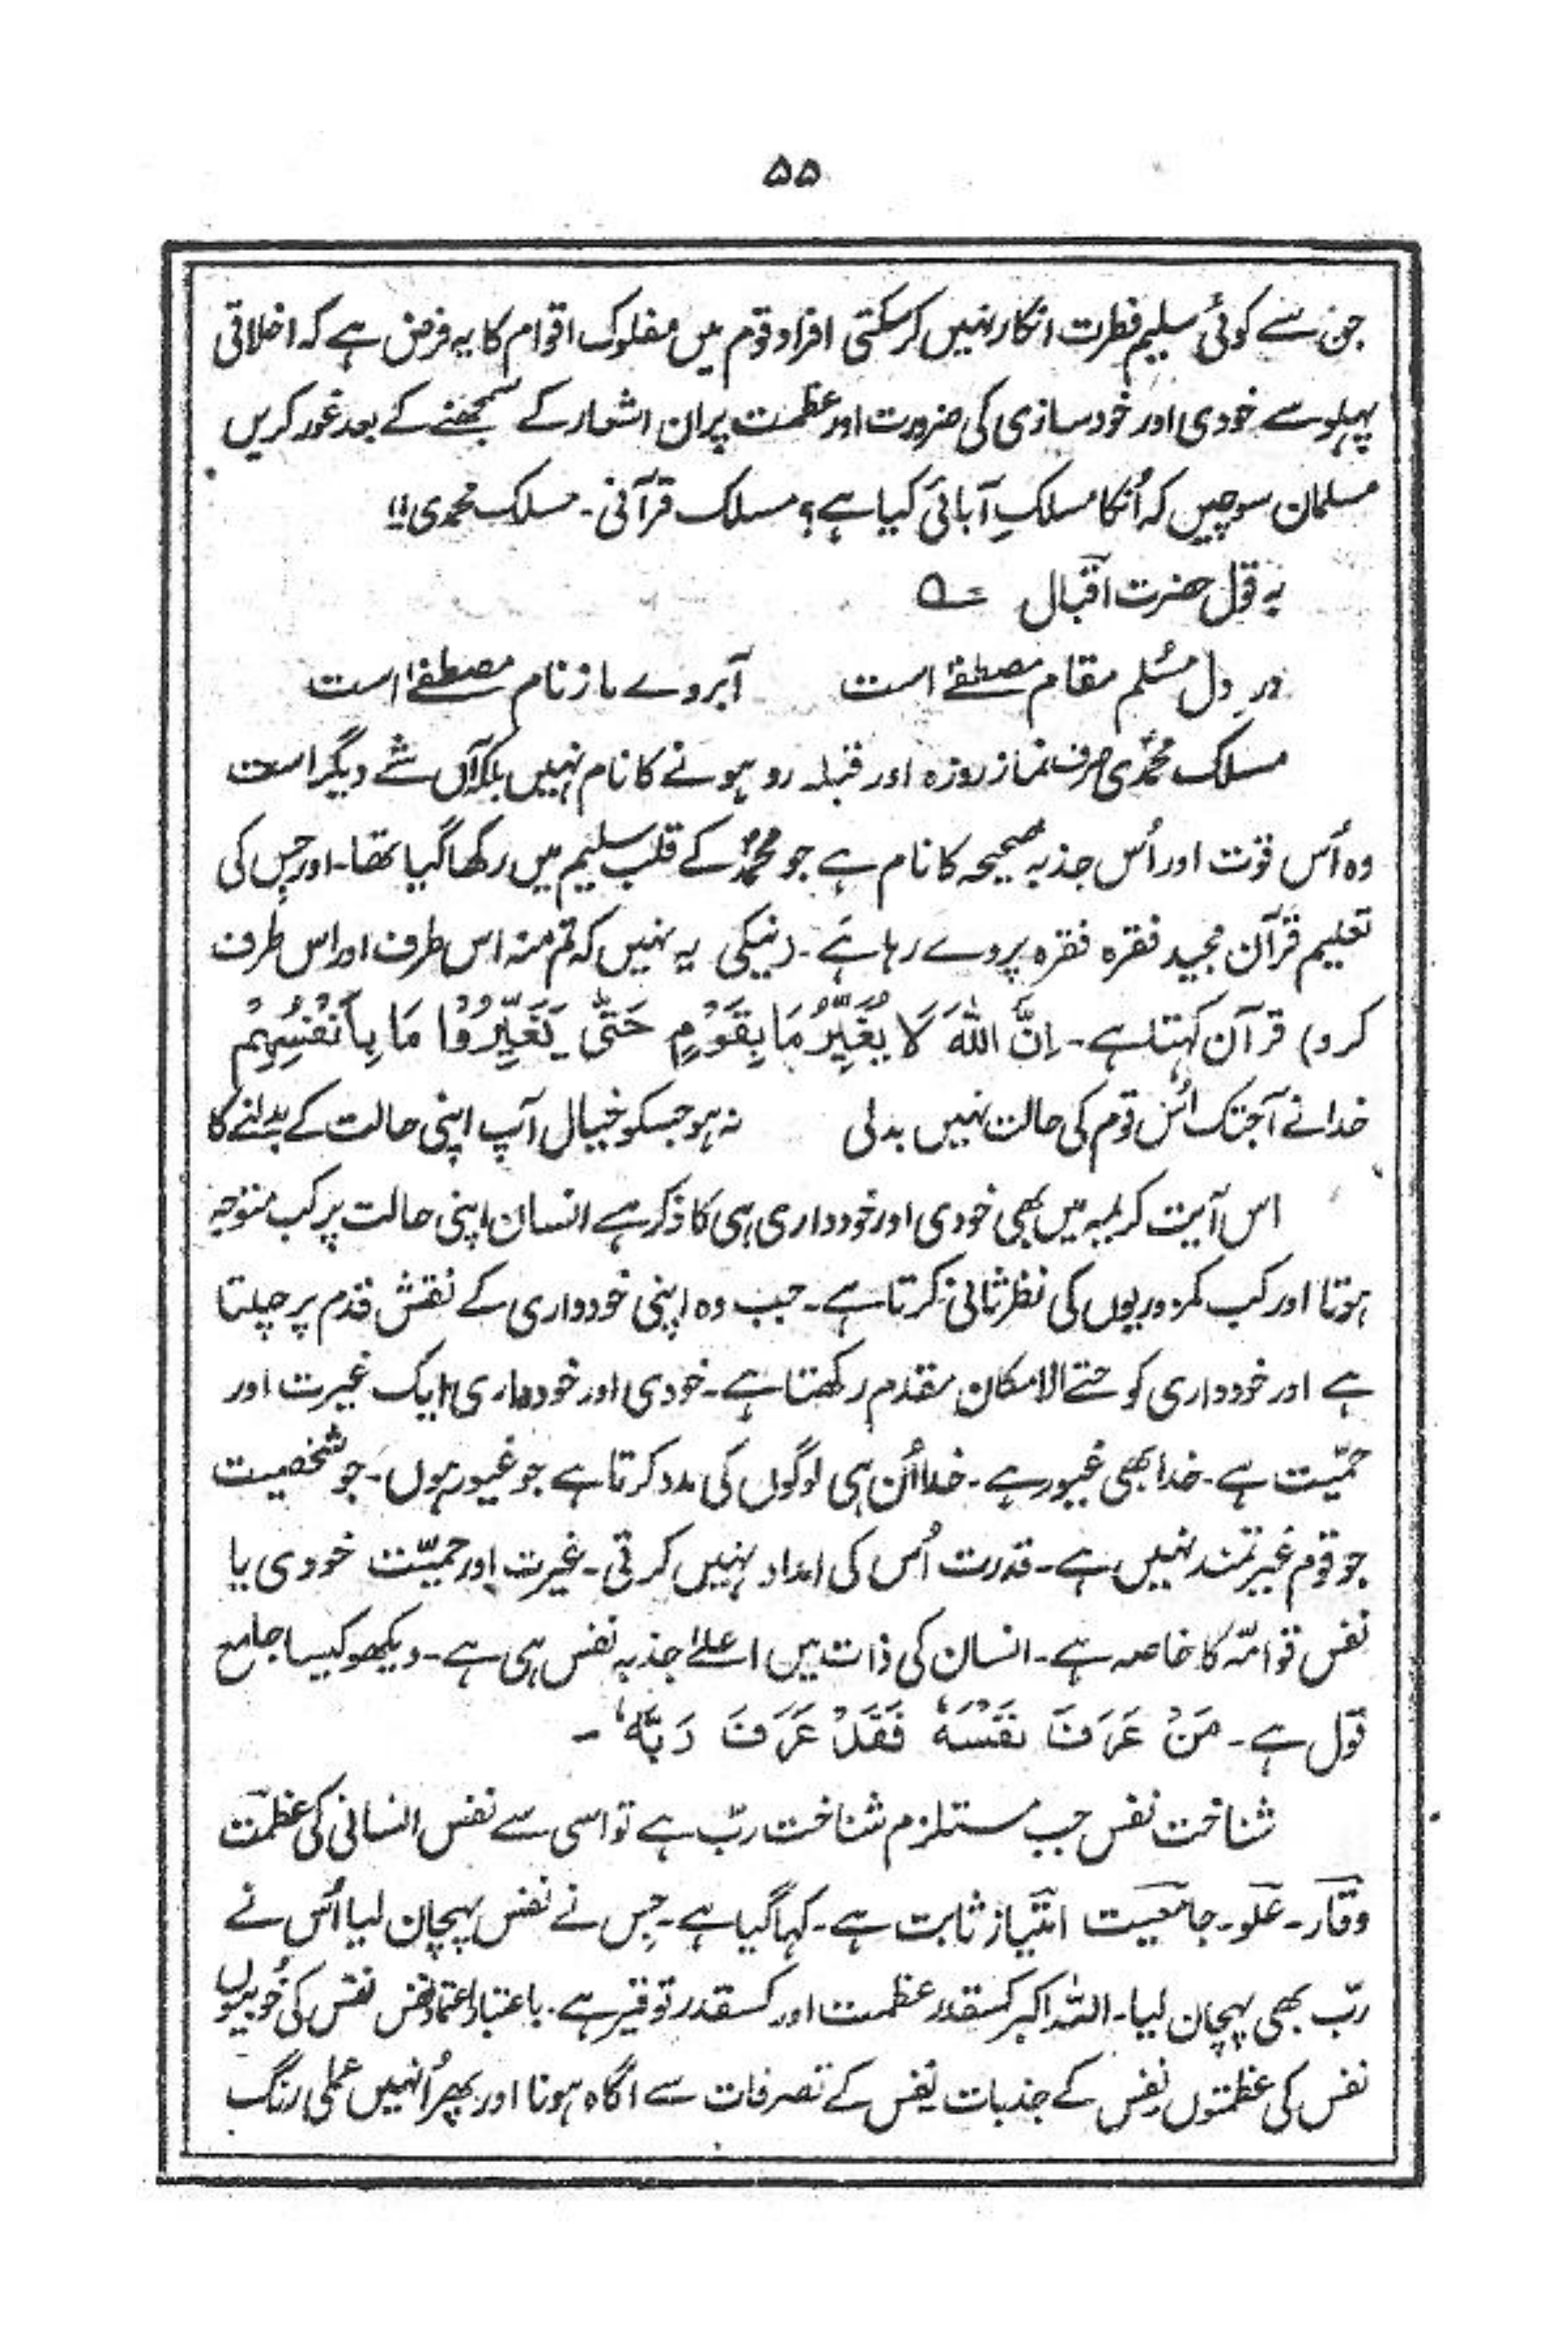 ۵۵
جن سے کوئی سلیم فطرت انکار نہیں کر سکتی افراد قوم میں مفلوک اقوام کا یہ فرض ہے کہ اخلاقی
پہلو سے خودی اور خود سازی کی ضرورت اور عظمت پر ان اشعار کے سمجھنے کے بعد غور کریں
مسلمان سوچیں کہ اُنکا مسلکِ آبائی کیا ہے؟ مسلک قرآنی۔ مسلک محمدی!!
بہ قول حضرت اقبال ؎
در دل مُسلم مقام مصطفےٰ است آبروے ما ز نام مصطفےٰ است
مسلک محمدؐی صرف نماز روزہ اور قبلہ رو ہونے کا نام نہیں بلکہ آں شے دیگر است
وہ اُس قوت اور اُس جذبہ صحیحہ کا نام ہے جو محمدؐ کے قلب سلیم میں رکھا گیا تھا۔ اور جس کی
تعلیم قرآن مجید فقرہ فقرہ پر دے رہا ہے۔ (نیکی یہ نہیں کہ تم منہ اس طرف اور اس طرف
کرو) قرآن کہتا ہے۔ اِنَّ اللّٰہَ لَا یُغَیِّرُ مَا بِقَوْمٍ حَتّٰی یُغَیِّرُوْا مَا بِاَنْفُسِہِمْ
خدا نے آجتک اُس قوم کی حالت نہیں بدلی نہ ہو جسکو خیال آپ اپنی حالت کے بدلنے کا
اس آیت کریمہ میں بھی خودی اور خودداری ہی کا ذکر ہے انسان اپنی حالت پر کب متوجہ
ہوتا اور کب کمزوریوں کی نظر ثانی کرتا ہے۔ جب وہ اپنی خودداری کے نقش قدم پر چلتا
ہے اور خودداری کو حتے الامکان مقدم رکھتا ہے۔ خودی اور خودداری ایک غیرت اور
حمیّت ہے۔ خدا بھی غیور ہے۔ خدا اُن ہی لوگوں کی مدد کرتا ہے جو غیور ہوں۔ جو شخصیت
جو قوم غیرتمند نہیں ہے۔ قدرت اُس کی امداد نہیں کرتی۔ غیرت اور حمیّت خودی یا
نفس قوامّہ کا خاصہ ہے۔ انسان کی ذات میں اعلےٰ جذبہ نفس ہی ہے۔ دیکھو کیسا جامع
قول ہے۔ مَنْ عَرَفَ نَفْسَہٗ فَقَدْ عَرَفَ رَبَّہٗ۔
شناخت نفس جب مستلزم شناخت ربّ ہے تو اسی سے نفس انسانی کی عظمت
وقار۔ علو۔ جامعیت امتیاز ثابت ہے۔ کہا گیا ہے۔ جس نے نفس پہچان لیا اُس نے
ربّ بھی پہچان لیا۔ اللہ اکبر کسقدر عظمت اور کسقدر توقیر ہے۔ با عتبار اعتماد نفس نفس کی خوبیوں
نفس کی عظمتوں نفس کے جذبات نفس کے تصرفات سے اگاہ ہونا اور پھر اُنہیں عملی رنگ